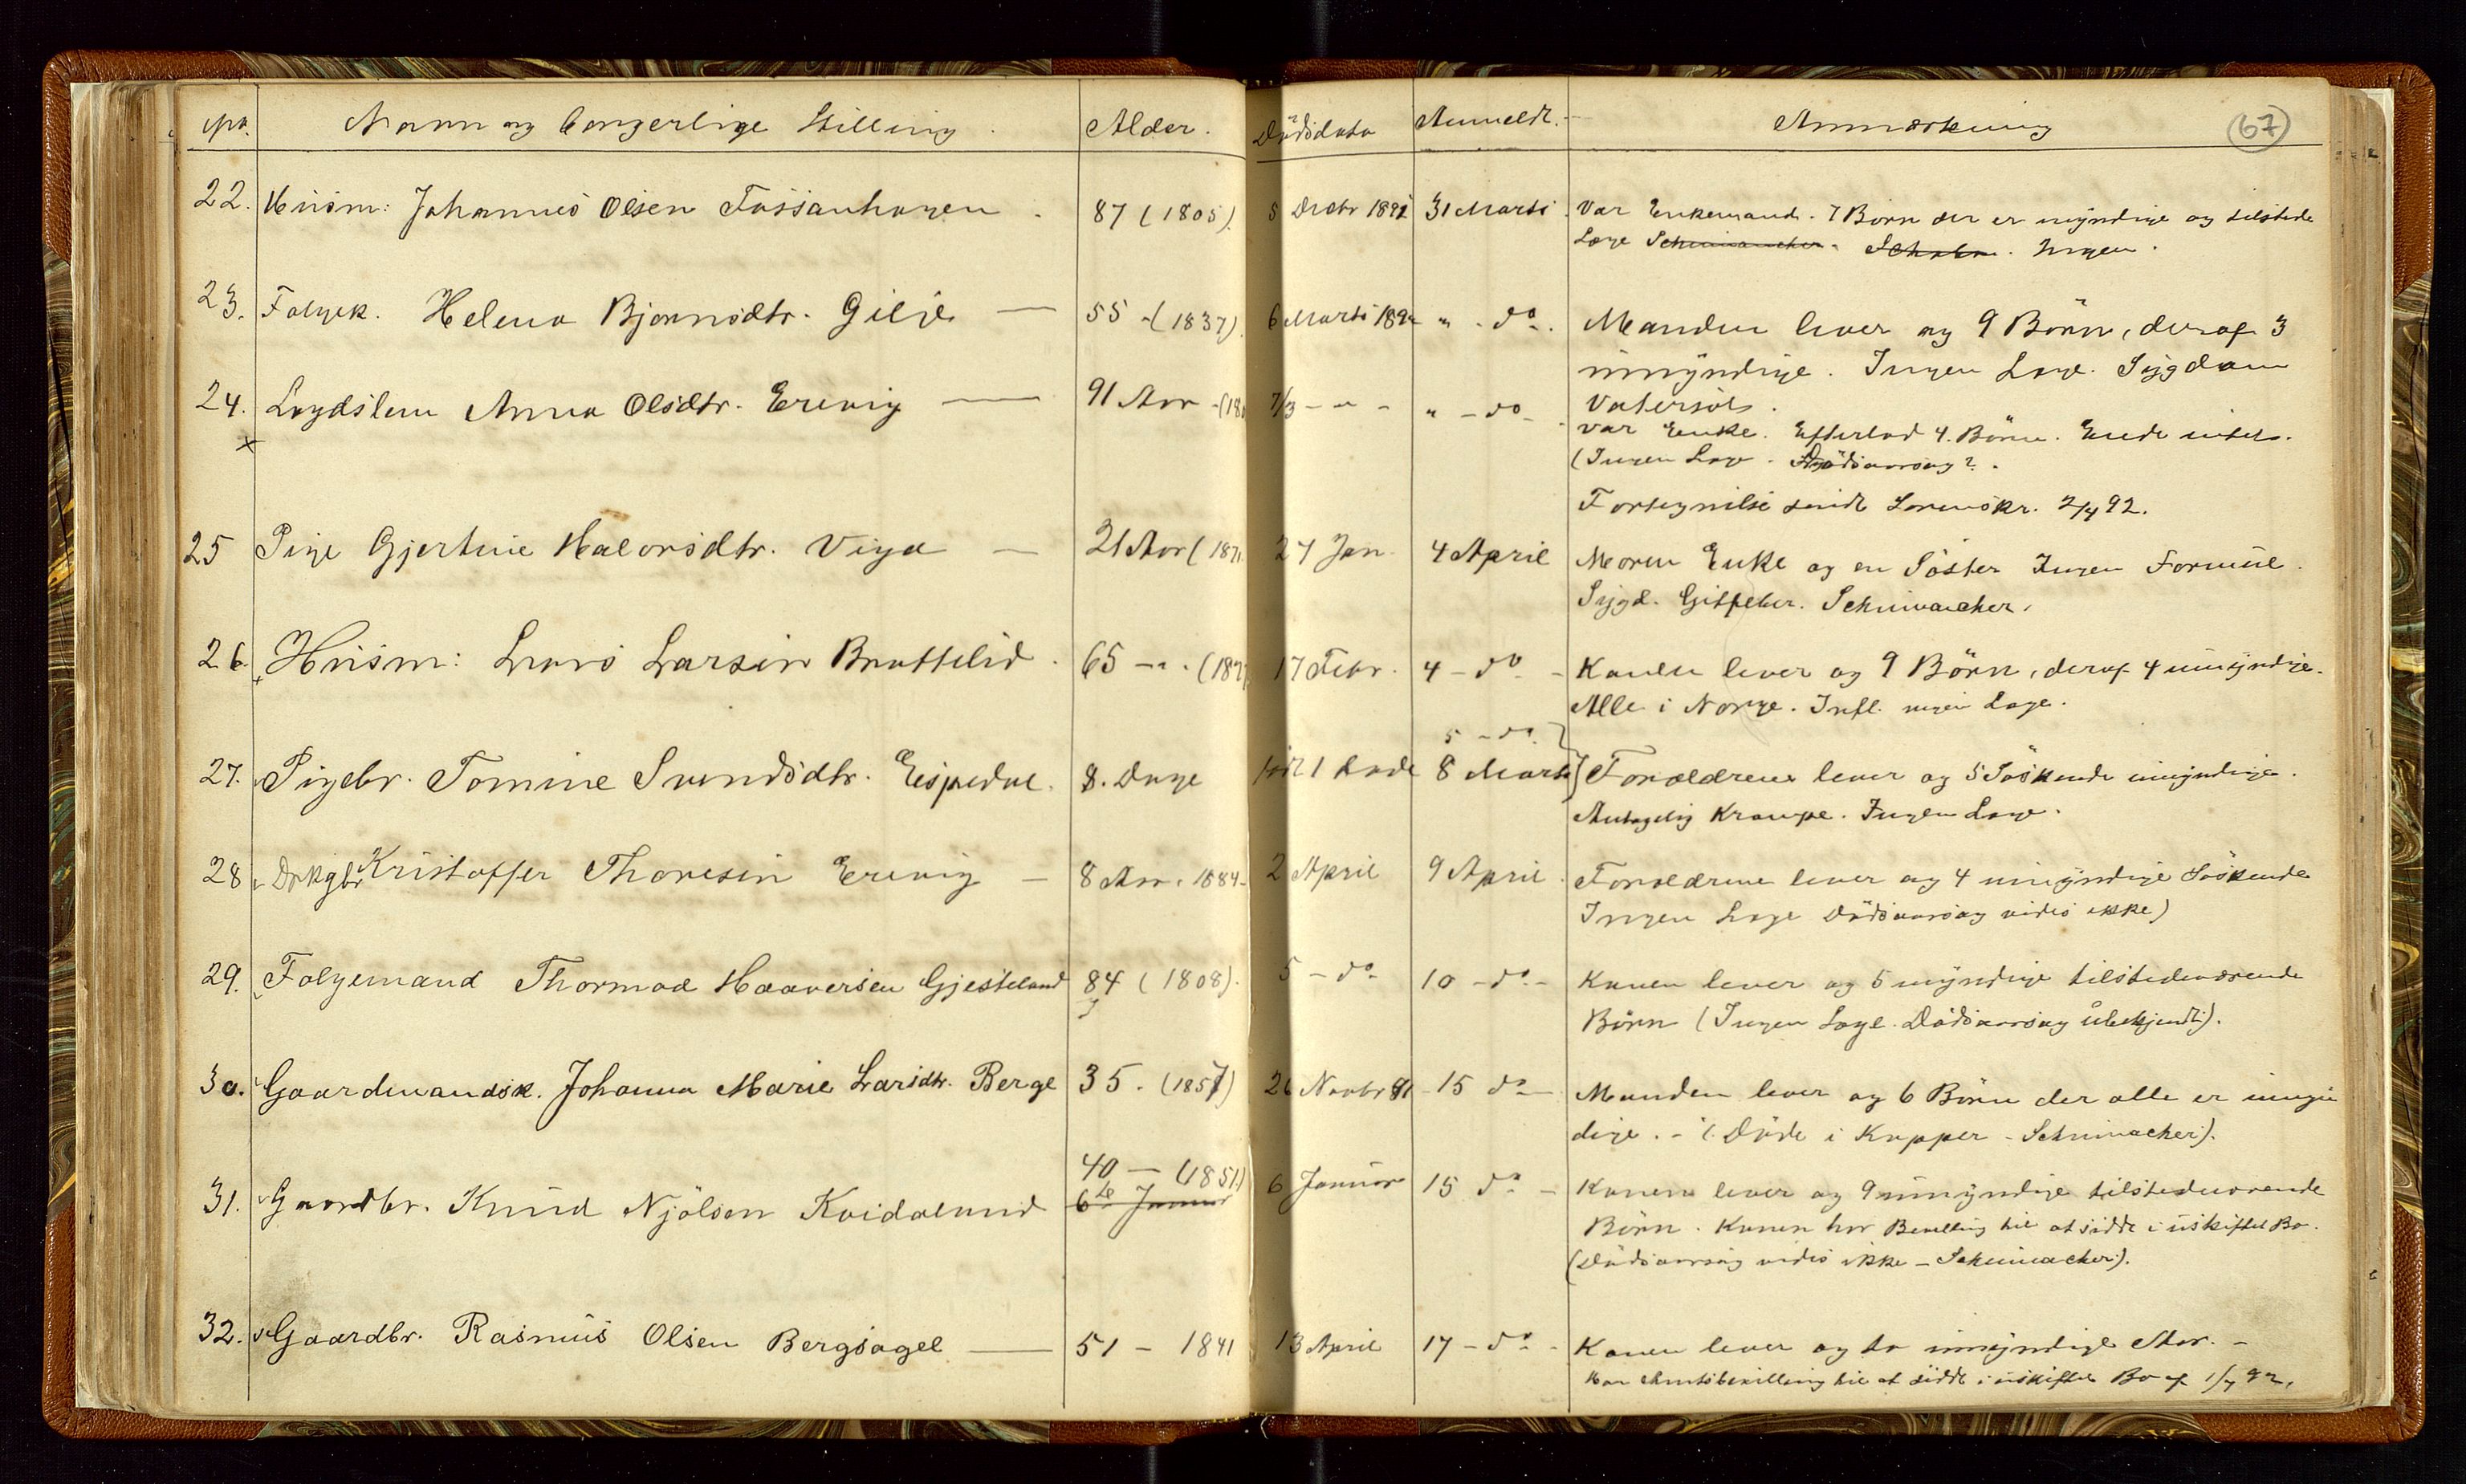 No. Navn og borgerlige Stilling. Alder. Dödsdato Anmeldt. Anmærkning (67)
22. Husm: Johannes Olsen Fossanhagen. 87 (1805). 5 Decbr 1891 31 Marts Var Enkemand. 7 Börn der er myndige og tilstede
Læge Schumacher. Ingen.
23. Folgek. Helena Bjørnsdtr. Gilje — 55 - (1837). 6 Marts 1892 " - do. Manden lever og 9 Börn, deraf 3
umyndige. Ingen Læge. Sygdom
Vatersot.
24. Lægdslem Anna Olsdtr. Erevig — 91 Aar - (180 7/3 - " - " - do - Var Enke. Efterlod 4 Börn. Eiede intet.
x (Ingen Læge. Dödsaarsag?.
Fortegnilse sendt Sorenskr. 2/4 92.
25 Pige Gjertine Halvorsdtr. Viga — 21 Aar (1871 27 Jan. 4 April Moren Enke og en Söster Ingen Formue.
Sygd. Gitfeber. Schumacher.
26. Husm: Lars Larsen Brattelid. 65 - " . (182 17 Febr. 4 - do - Konen lever og 9 Börn, deraf 4 umyndige.
Alle i Norge. Infl. ingen Læge.
5 - do.
27. Pigebr. Tomine Svendsdtr. Eispedal. 8. Dage födt 1 död 8 Marts Forældrene lever og 5 Söskende umyndige.
Antagelig Krampe. Ingen Læge.
28 Drkgbr Kristoffer Thoresen Erevig — 8 Aar. 1884 - 2 April 9 April. Forældrene lever og 4 umyndige Söskende
Ingen Læge Dödsaarsag vides ikke)
29. Folgemand Thormod Haaversen Gjesteland 84 (1808). 5 - do - 10 - do - Konen lever og 5 myndige tilstedeværende
Börn (Ingen Læge. Dödsaarsag übekjendt).
30. Gaardmandsk. Johanna Marie Larsdtr. Berge 35. (1857) 26 Novbr 91 - 15 do - Manden lever og 6 Börn der alle er umyn
dige. - (Döde i Kopper - Schumacher).
40 — (1851)
31. Gaardbr. Knud Njölsen Kvidaland 6te Januar 6 Januar 15 do - Konen lever og 9 umyndige tilstedeværende
Börn. Konen har Bevilling til at sidde i uskiftet Bo.
(Dödsaarsag vides ikke - Schumacher).
32. Gaardbr. Rasmus Olsen Bergsagel — 51 - 1841 13 April 17 - do - Konen lever og to umyndige -
Har Amtsbevilling til at sidde i uskiftet Bo af 1/7 92.